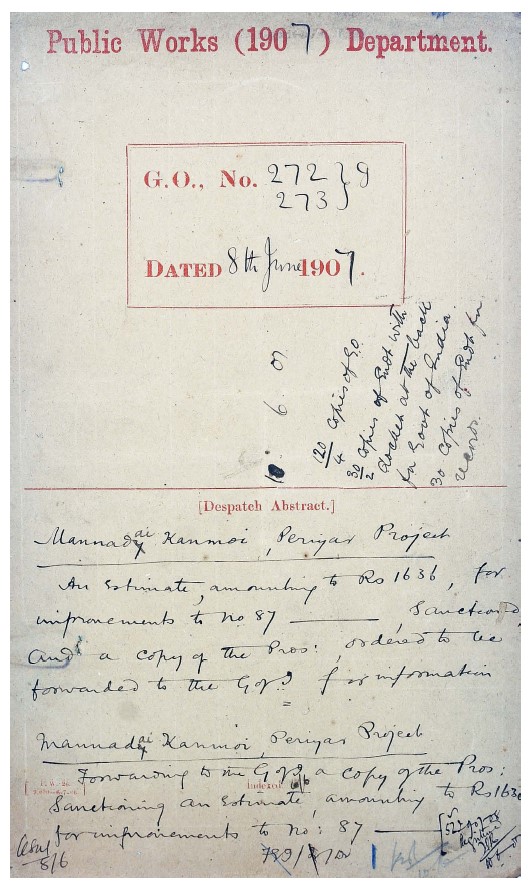 Public Works (1907) Department.
G.O., No. 272 } 9
273
DATED 8th June 1907.
10 6 07
120/4 Copies of G.O.
30/2 Copies of Endt with
docket at the back
for Govt of India
30 Copies of Endt for
records.
[Despatch Abstract.]
Mannadai Kanmoi, Periyar Project
An Estimate, amounting to Rs 1636, for
improvements to No 87 ———, Sanctioned,
and a copy of the Pros: ordered to be
forwarded to the G of I for information
Mannadai Kanmoi, Periyar Project
Forwarding to the G of I a copy of the Pros:
Indexed
Sanctioning an Estimate, amounting to Rs 1636
for improvements to No: 87 ———
8/6